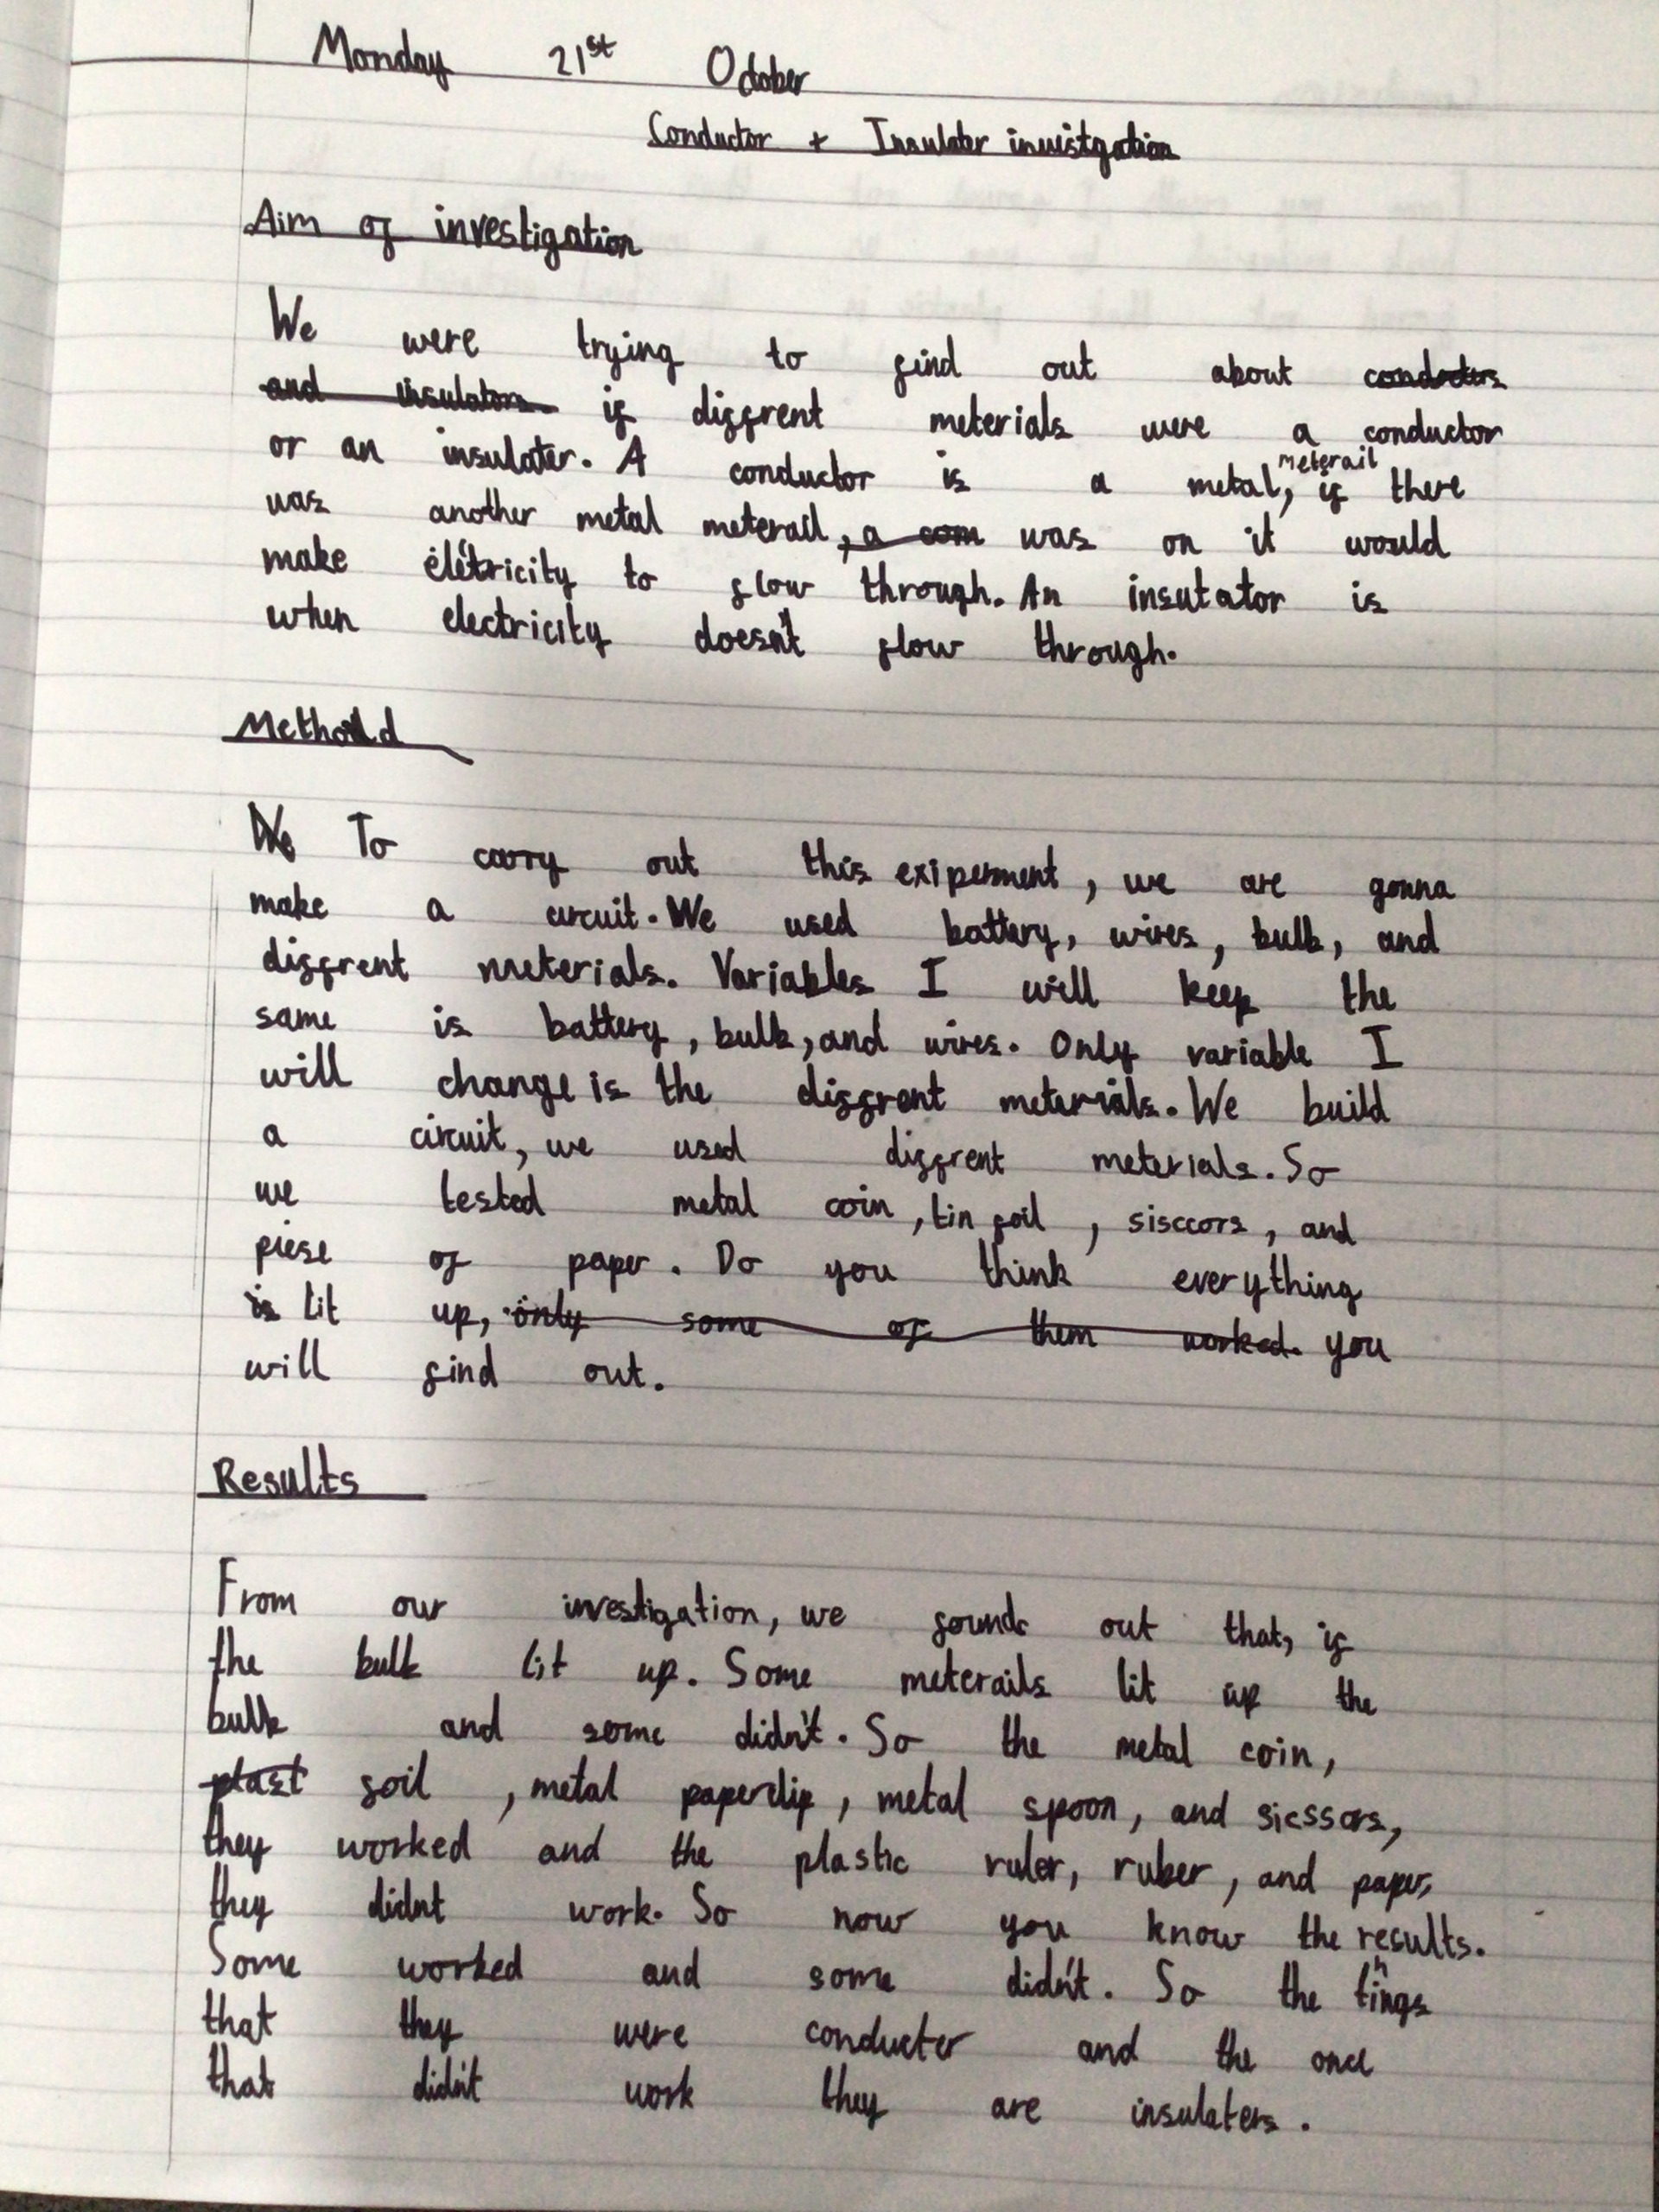 Monday 21st October
Conductor + Insulator invistgation
Aim of investigation
We were trying to find out about conductors
and insulators. if diffrent meterials were a conductor
or an insulater. A conductor is a metal, meterail if there
was another metal meterail, a com was on it would
make elétricity to flow through. An insutator is
when electricity doesn't flow through.
Method
We To carry out this exiperment, we are gonna
make a circuit. We used battery, wires, bulb, and
diffrent meterials. Variables I will keep the
same is battery, bulb, and wires. Only variable I
will change is the diffrent meterials. We build
a circuit, we used diffrent meterials. So
we tested metal coin, tin foil, sisccors, and
piese of paper. Do you think everything
is lit up, only some of them worked. you
will find out.
Results
From our investigation, we found out that, if
the bulb lit up. Some meterails lit up the
bulb and some didn't. So the metal coin,
plast foil, metal paperclip, metal spoon, and sicssors,
they worked and the plastic ruler, ruber, and paper,
they didnt work. So now you know the results.
Some worked and some didn't. So the things
that they were conducter and the once
that didn't work they are insulaters.